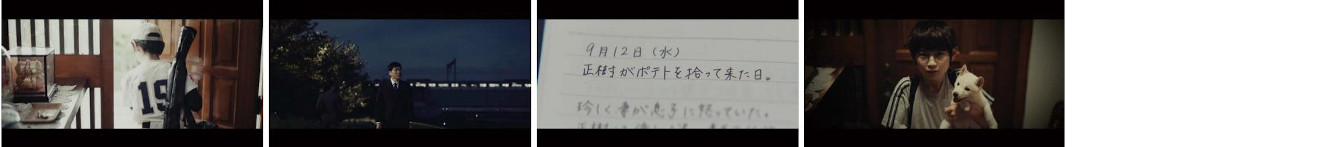 19
9月12日（水）
正樹がポテトを拾って来た日。
珍しく妻が息子に怒っていた。